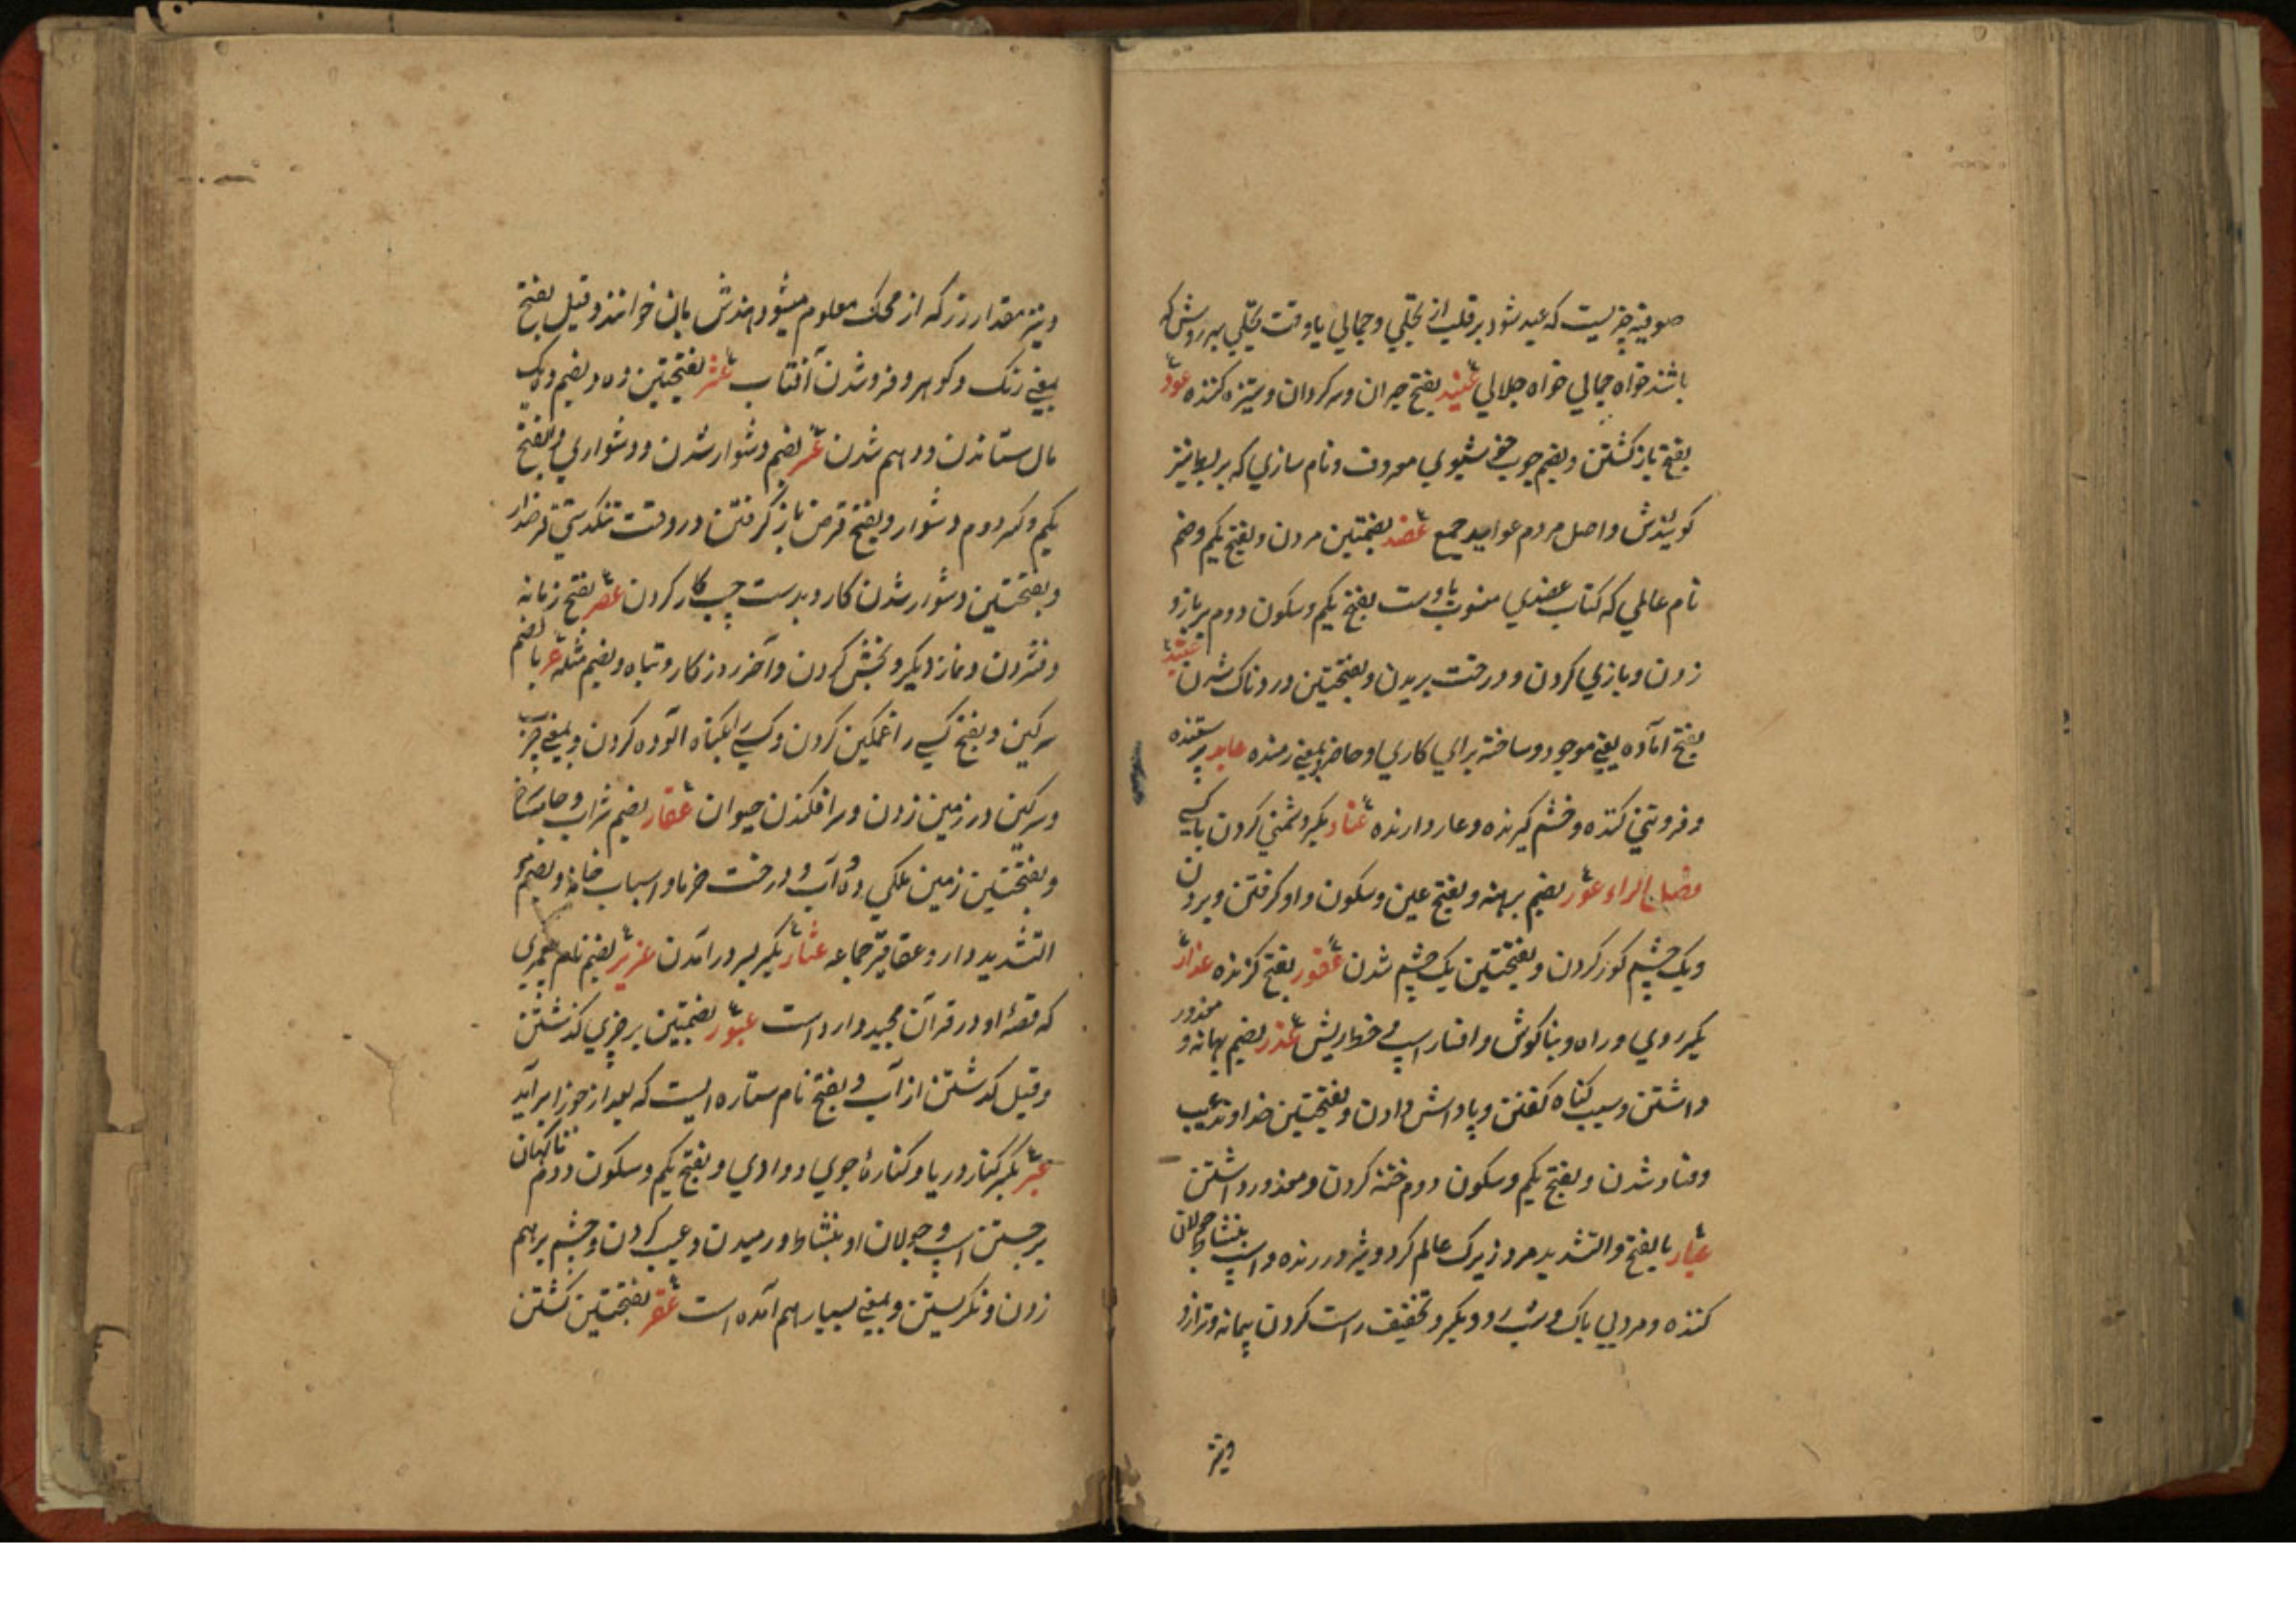 صوفیه چیزیست که عید شود بر قلب از تجلی و جمالی یا وقت تجلی بهر روش که
باشد خواه جمالی خواه جلالی عنید بفتح حیران و سرکردان و ستیزه کننده عود
بفتح باز کشتن و بضم چوب خوشبوی معروف و نام سازی که بربط نیز
کویندش و اصل مردم عواید جمع عضد بضمتین مردن و بفتح یکم و ضم
نام عالمی که کتاب عضدی منسوب باوست بفتح یکم و سکون دوم بر بازو
زدن و یاری کردن و درخت بریدن و بفتحتین دردناک شدن عتید
بفتح آماده یعنی موجود و ساخته برای کاری و حاضر بمعنی رمنده عابد پرستنده
و فروتنی کننده و خشم کیرنده و عار دارنده عناد بکسر دشمنی کردن با کسی
مصباح الراء عور بضم برهنه و بفتح عین و سکون واو کرفتن و بردن
و یک چشم کور کردن و بفتحتین یک چشم شدن عقور بفتح کزنده عذار
بکسر روی و راه و بناکوش و افسار اسپ و خط ریش عذر بضم بهانه و معذور
داشتن و سبب کناه کفتن و پاداش دادن و بفتحتین خداوند عیب
و فساد شدن و بفتح یکم و سکون دوم ختنه کردن و معذور داشتن
عیار بالفتح و التشدید مرد زیرک عالم کرد و شیر درنده و اسپ بنشاط جولان
کننده و مرد بی باک و شب رو و بکسر و تخفیف راست کردن پیمانه و ترازو
ونیز
ونیز مقدار زر که از محک معلوم میشود هندش بان خوانند و قیل بفتح
بمعنی رنک و کوهر و فرو شدن آفتاب عشر بفتحتین ده و بضم ده یک
مال ستاندن و دهم شدن عسر بضم دشوار شدن و دشواری و بالفتح
یکم و کسر دوم دشوار و بفتح قرض باز کرفتن در وقت تنکدستی قرضدار
و بفتحتین دشوار شدن کار و بدست چپ کار کردن عصر بفتح زمانه
و فشردن و نماز دیکر و بخشش کردن و آخر روز کار و تباه و بضم مثله عر بالضم
سرکین و بفتح کسی را غمکین کردن و کسی را بکناه آلوده کردن و بمعنی جرب
و سرکین در زمین زدن و سر افکندن حیوان عقار بضم شراب و جامه سرخ
و بفتحتین زمین ملکی و ده آب و درخت خرما و اسباب خانه و بضم و
التشدید دارو عقاقیر جماعه عثار بکسر بسر در آمدن عزیر بضم نام پیغمبری
که قصه او در قرآن مجید وارد است عبور بضمتین بر چیزی کذشتن
و قیل کذشتن از آب و بفتح نام ستاره ایست که بعد از جوزا بر آید
عبر بکسر کنار دریا و کناره جوی و وادی و بفتح یکم و سکون دوم ناکهان
برجستن اسپ و جولان او بنشاط و رمیدن و عیب کردن و چشم بر هم
زدن و نکریستن و بمعنی بسیار هم آمده است عقر بفتحتین کشتن